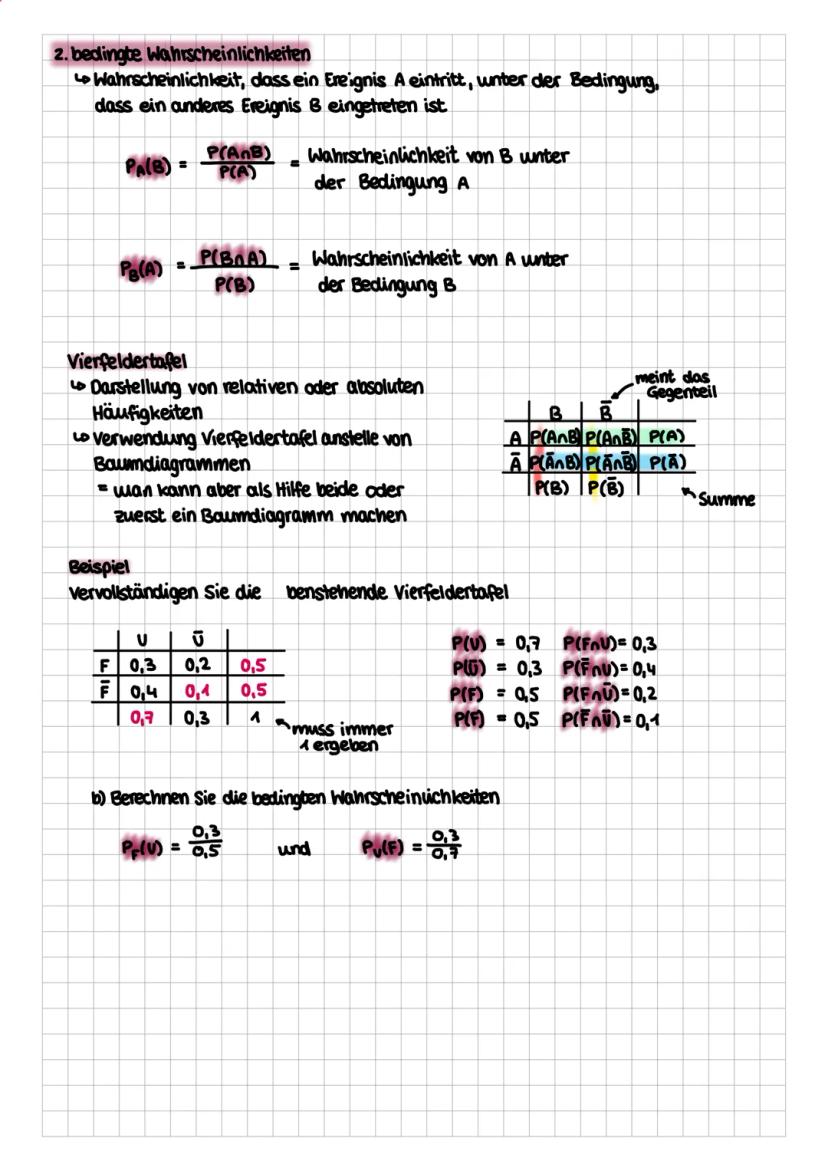 2. bedingte Wahrscheinlichkeiten
↳ Wahrscheinlichkeit, dass ein Ereignis A eintritt, unter der Bedingung,
dass ein anderes Ereignis B eingetreten ist
P_A(B) = P(A∩B)/P(A) = Wahrscheinlichkeit von B unter
der Bedingung A
P_B(A) = P(B∩A)/P(B) = Wahrscheinlichkeit von A unter
der Bedingung B
Vierfeldertafel
↳ Darstellung von relativen oder absoluten
Häufigkeiten
↳ Verwendung Vierfeldertafel anstelle von
Baumdiagrammen
= man kann aber als Hilfe beide oder
zuerst ein Baumdiagramm machen
meint das
Gegenteil
B B̅
A P(A∩B) P(A∩B̅) P(A)
A̅ P(A̅∩B) P(A̅∩B̅) P(A̅)
P(B) P(B̅)
Summe
Beispiel
Vervollständigen Sie die benstehende Vierfeldertafel
U U̅
F 0,3 0,2 0,5
F̅ 0,4 0,1 0,5
0,7 0,3 1
muss immer
1 ergeben
P(U) = 0,7 P(F∩U) = 0,3
P(U̅) = 0,3 P(F̅∩U) = 0,4
P(F) = 0,5 P(F∩U̅) = 0,2
P(F̅) = 0,5 P(F̅∩U̅) = 0,1
b) Berechnen Sie die bedingten Wahrscheinlichkeiten
P_F(U) = 0,3/0,5 und P_U(F) = 0,3/0,7